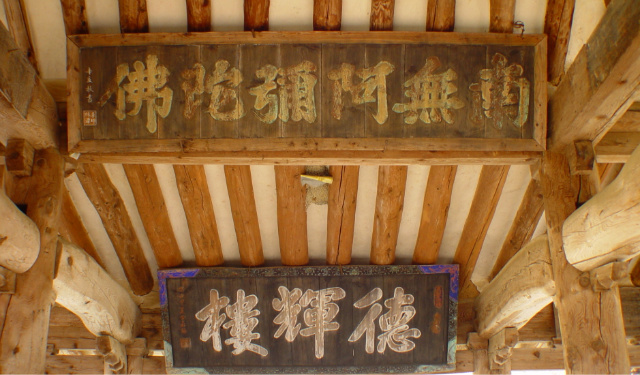 南無阿彌陀佛
德輝樓